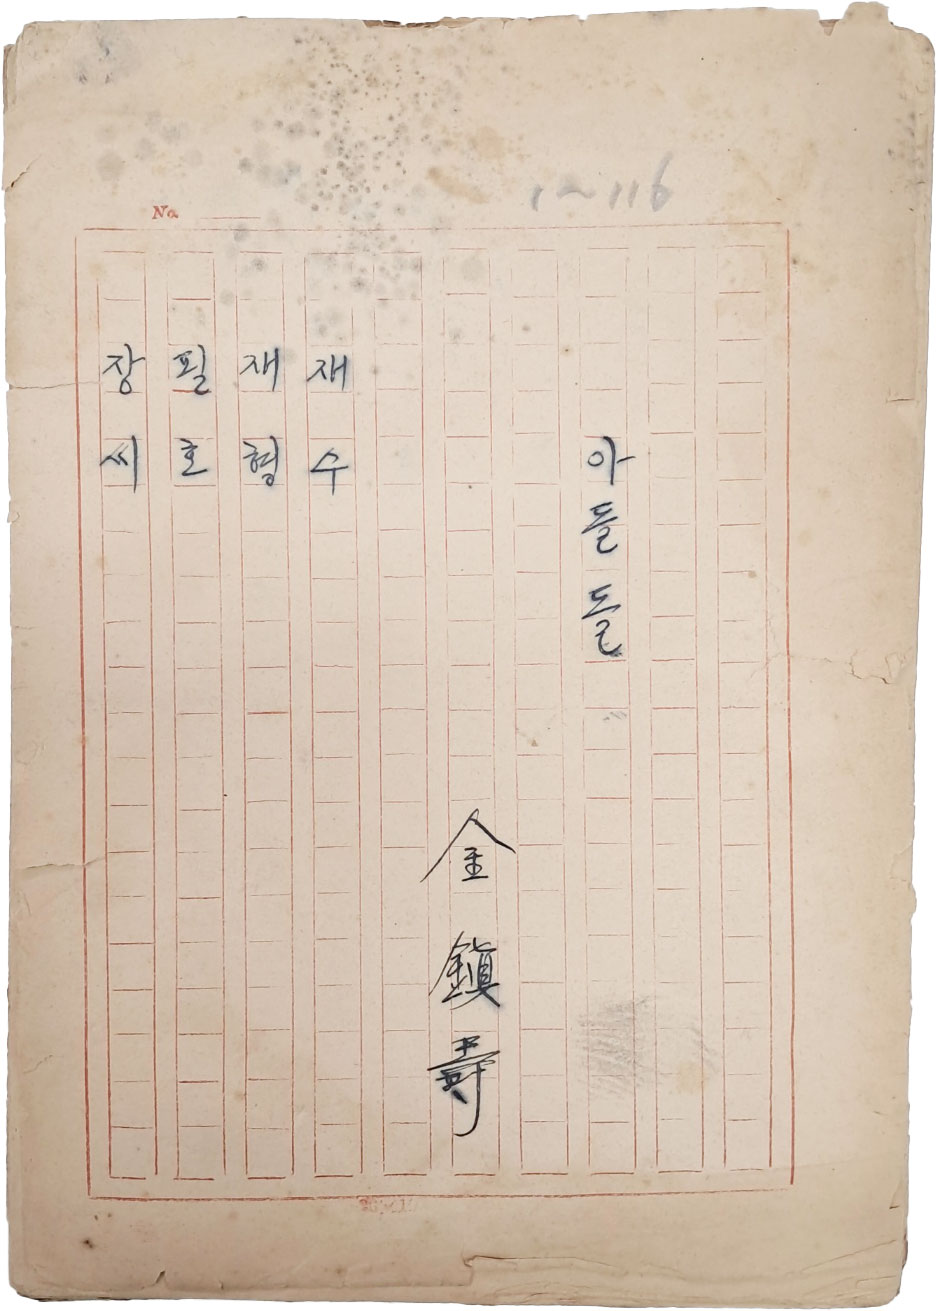 1~116
No.
아들들
金鎭壽
재수
재형
필호
장씨